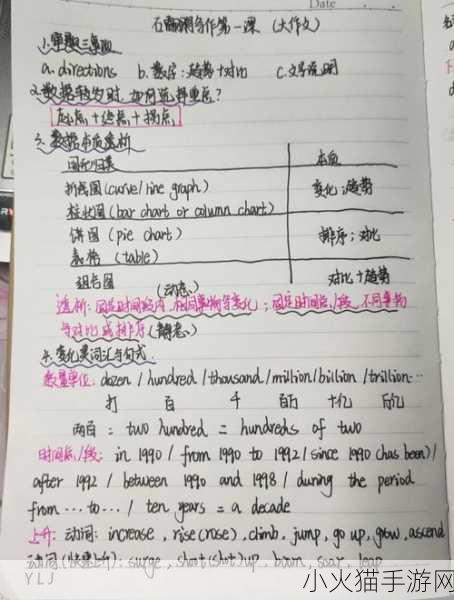 Date
石丽娜写作第一课 (大作文)
1.审题三要点
a. directions b. 数字: 趋势+对比 c. 文字说明
2.数据较多时,如何选择重点?
起点+终点+拐点
3.数据本质透析
图形归类 本质
折线图 (curve/line graph) 变化;趋势
柱状图 (bar chart or column chart)
饼图 (pie chart) 排序;对比
表格 (table)
组合图 对比+趋势
(动态)
透析: 固定时间段内,相同事物有变化;固定时间点/段,不同事物
有对比或排序 (静态)
4.变化类词汇与句式
数量单位: dozen / hundred / thousand / million / billion / trillion…
打 百 千 百万 十亿 万亿
两百 = two hundred = hundreds of two
时间点/段: in 1990 / from 1990 to 1992 / since 1990 (has been) /
after 1992 / between 1990 and 1998 / during the period
from … to … / ten years = a decade
上升: 动词: increase, rise (rose), climb, jump, go up, grow, ascend
动词 (快速上升): surge, shoot (shot) up, boom, soar, leap
YLJ
小火猫手游网